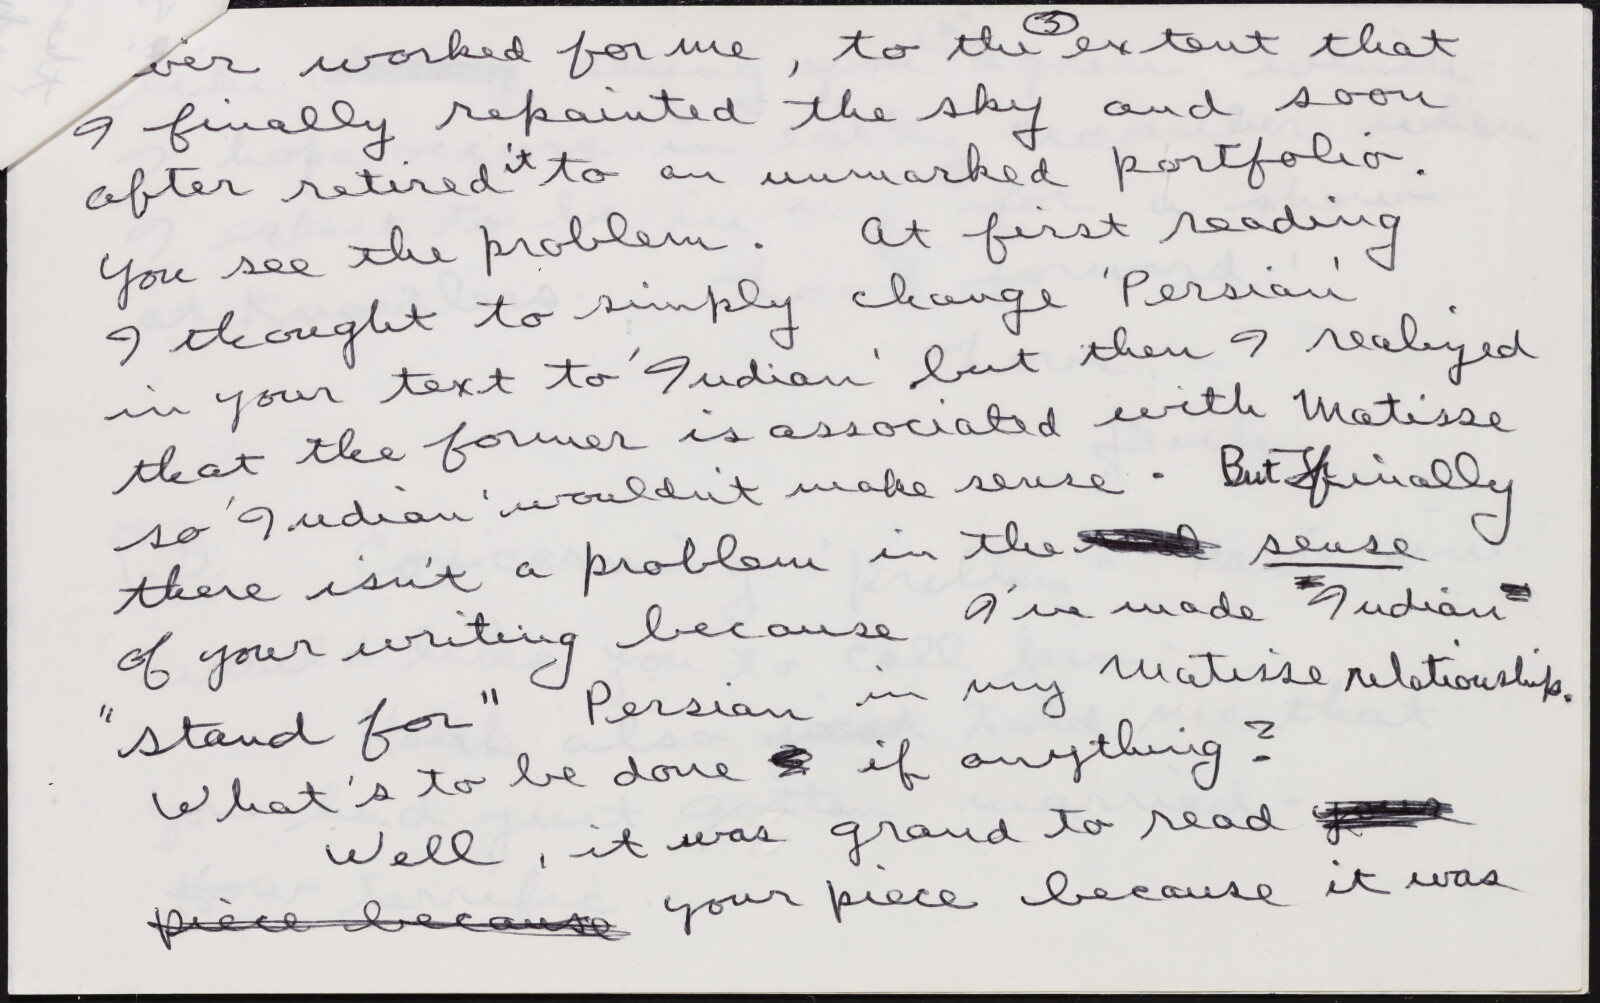 ③
ver worked for me, to the extent that
I finally repainted the sky and soon
after retired it to an unmarked portfolio.
You see the problem. At first reading
I thought to simply change 'Persian'
in your text to 'Indian' but then I realized
that the former is associated with Matisse
so 'Indian' wouldn't make sense. But finally
there isn't a problem in the sense
of your writing because I've made "Indian"
"stand for" Persian in my Matisse relationship.
What's to be done if anything?
Well, it was grand to read your
piece because your piece because it was